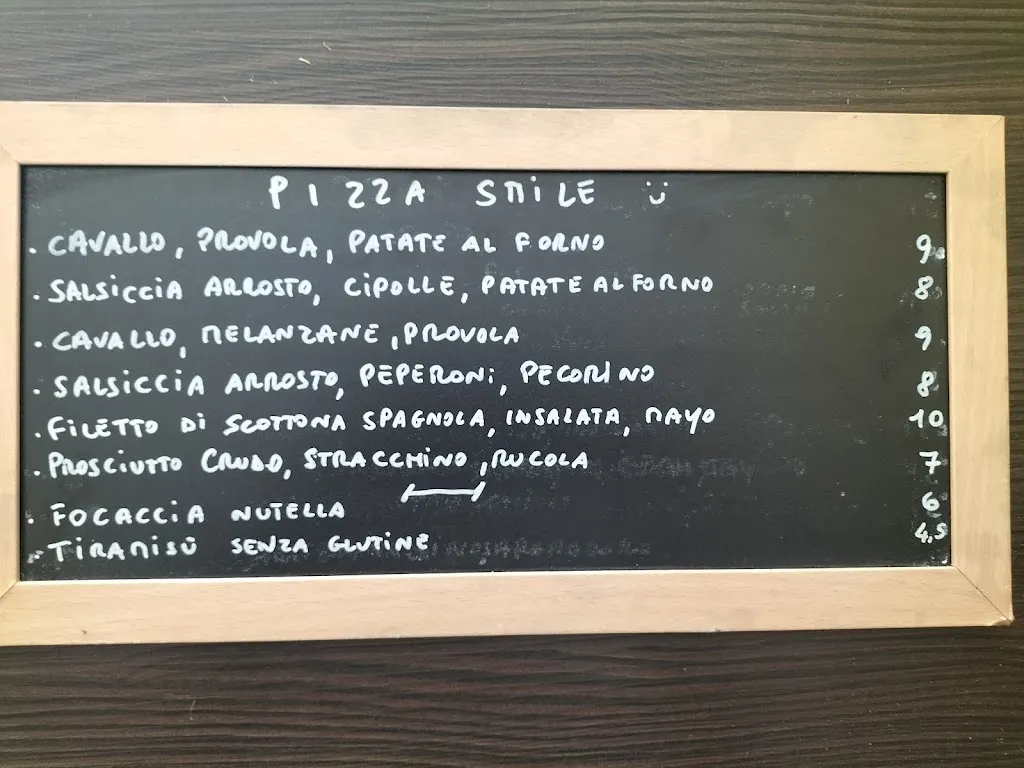 PIZZA SMILE
. CAVALLO, PROVOLA, PATATE AL FORNO 9
. SALSICCIA ARROSTO, CIPOLLE, PATATE AL FORNO 8
. CAVALLO, MELANZANE, PROVOLA 9
. SALSICCIA ARROSTO, PEPERONI, PECORINO 8
. FILETTO DI SCOTTONA SPAGNOLA, INSALATA, MAYO 10
. PROSCIUTTO CRUDO, STRACCHINO, RUCOLA 7
. FOCACCIA NUTELLA 6
. TIRAMISÙ SENZA GLUTINE 4,5